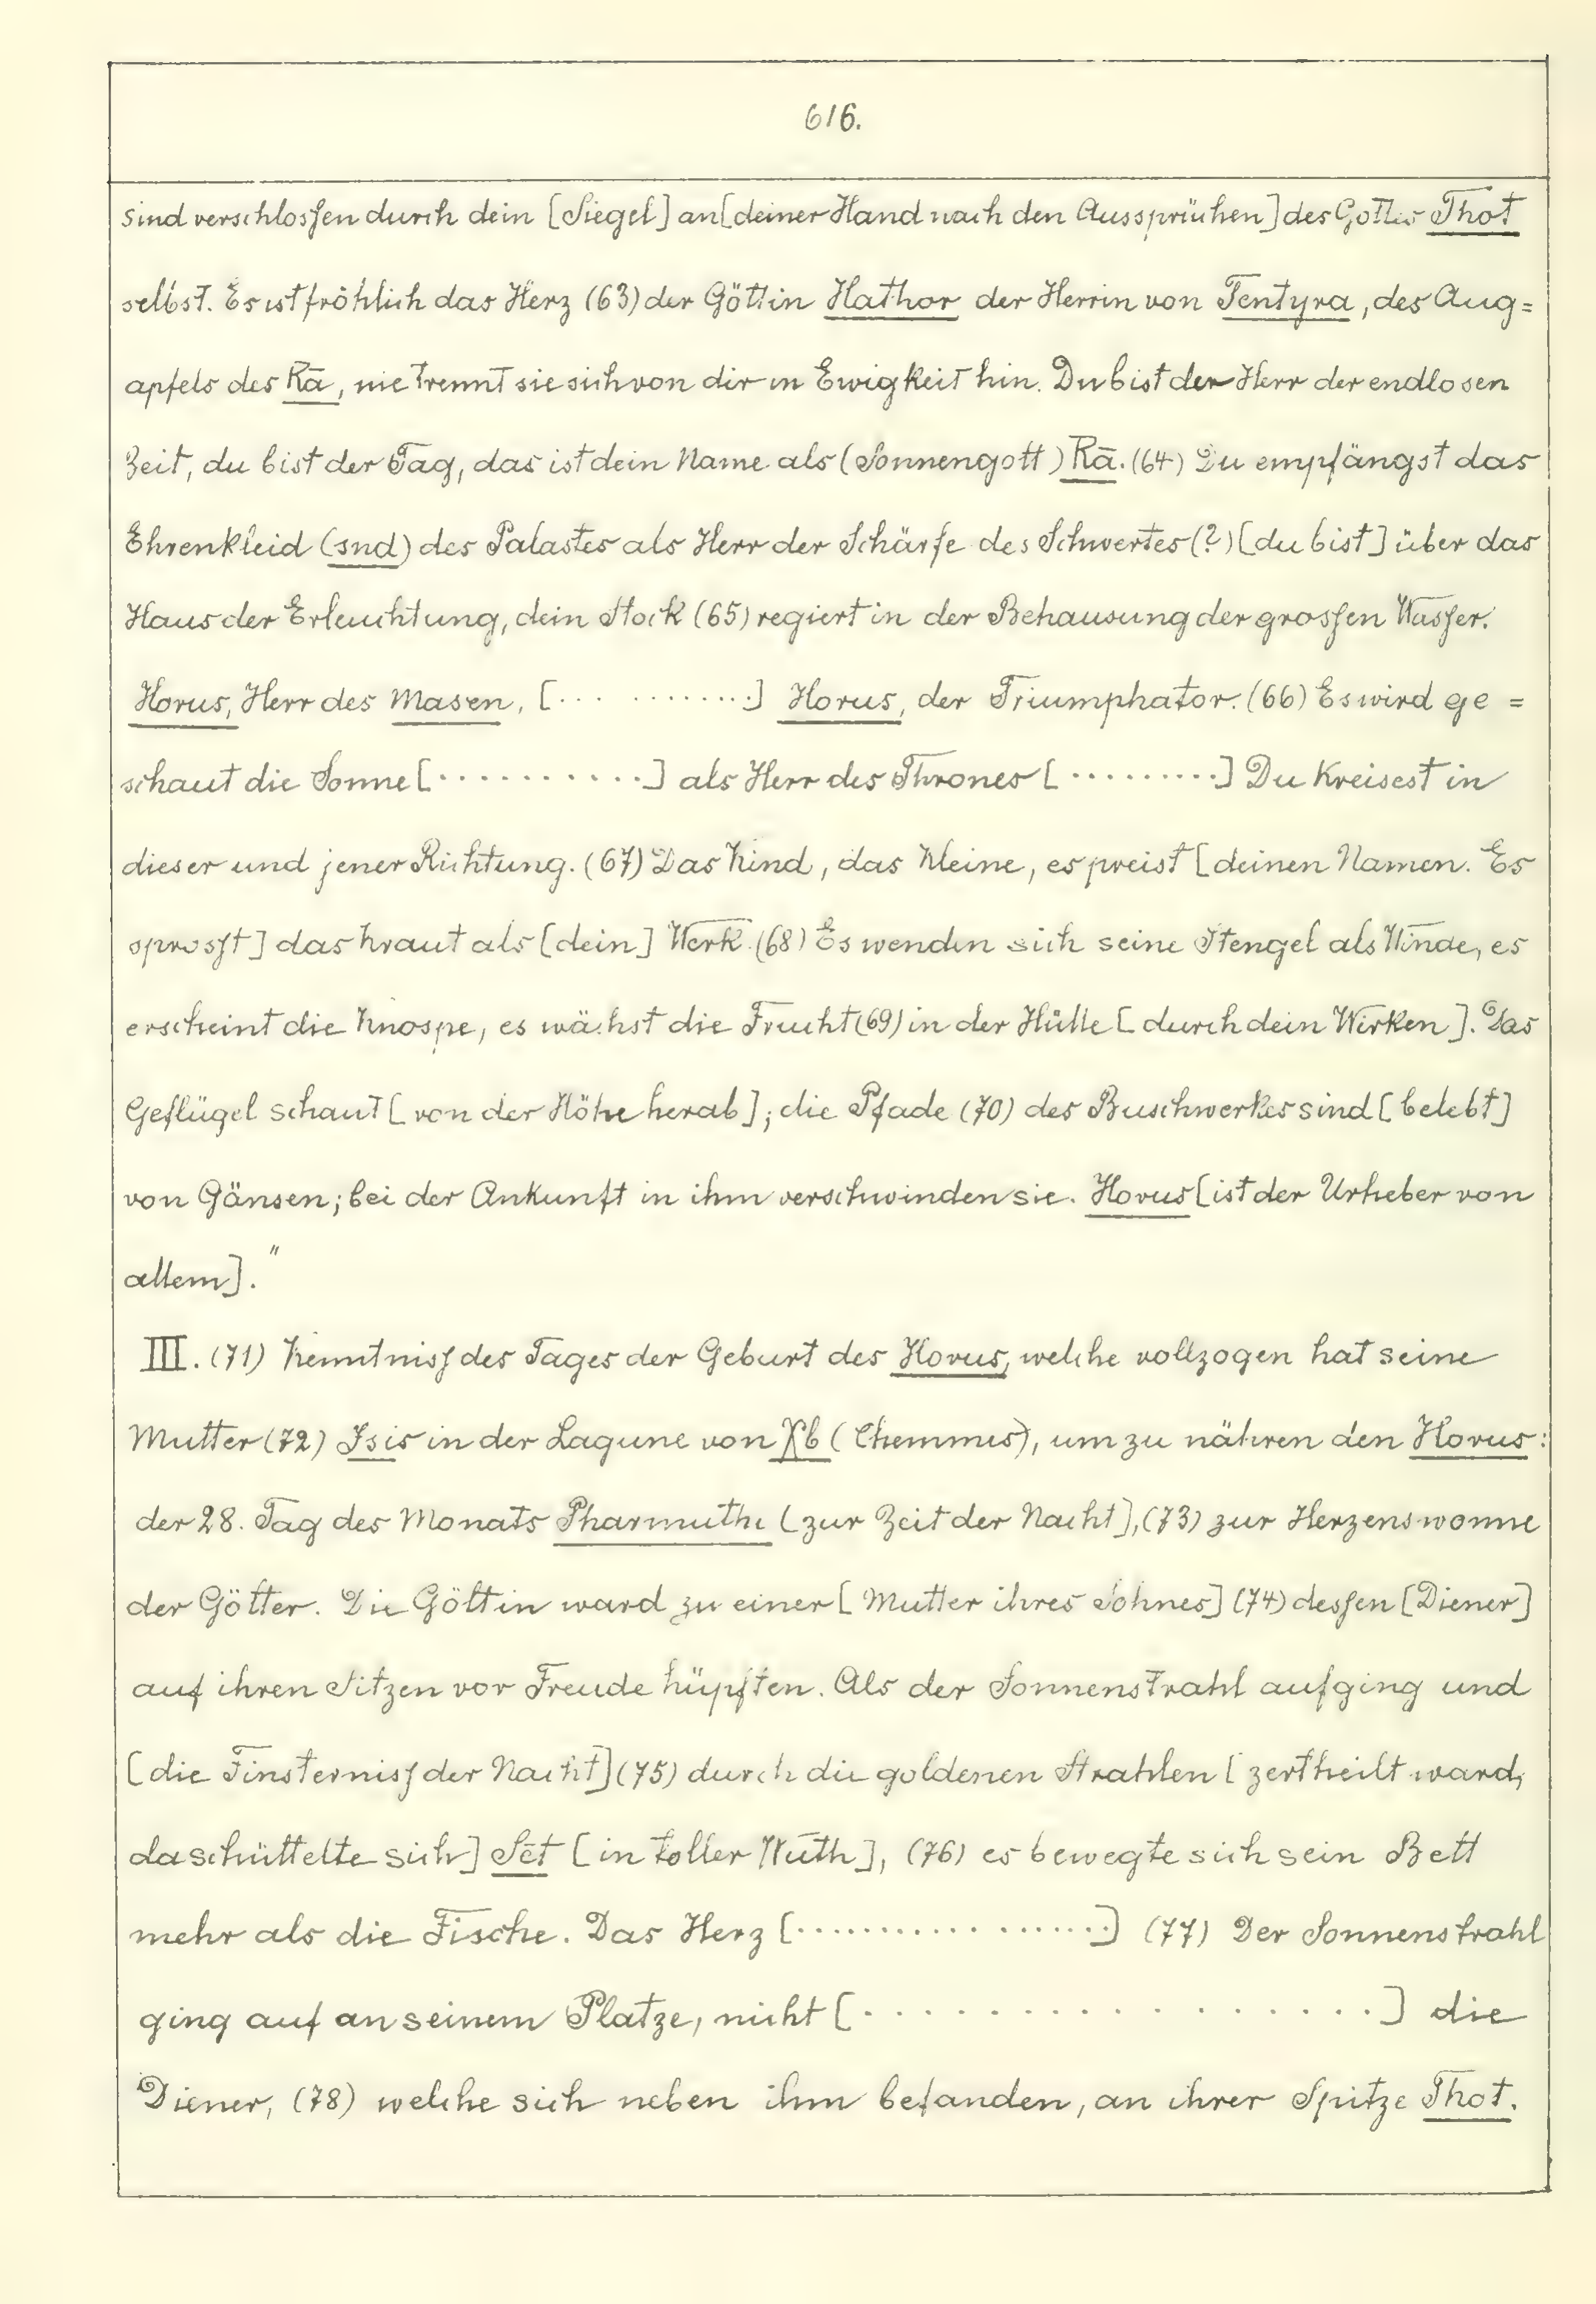 616.
sind verschlossen durch dein [Siegel] an [deiner Hand nach den Aussprüchen] des Gottes Thot
selbst. Es ist fröhlich das Herz (63) der Göttin Hathor der Herrin von Tentyra, des Aug=
apfels des Rā, nie trennt sie sich von dir in Ewigkeit hin. Du bist der Herr der endlosen
Zeit, du bist der Tag, das ist dein Name als (Sonnengott) Rā. (64) Du empfängst das
Ehrenkleid (snd) des Palastes als Herr der Schärfe des Schwertes (?) [du bist] über das
Haus der Erleuchtung, dein Stock (65) regiert in der Behausung der grossen Wasser.
Horus, Herr des Masen, [............] Horus, der Triumphator. (66) Es wird ge=
schaut die Sonne [...........] als Herr des Thrones [.........] Du kreisest in
dieser und jener Richtung. (67) Das Kind, das Kleine, es preist [deinen Namen. Es
sprosst] das Kraut als [dein] Werk. (68) Es wenden sich seine Stengel als Winde, es
erscheint die Knospe, es wächst die Frucht (69) in der Hülle [durch dein Wirken]. Das
Geflügel schaut [von der Höhe herab]; die Pfade (70) des Buschwerkes sind [belebt]
von Gänsen; bei der Ankunft in ihm verschwinden sie. Horus [ist der Urheber von
allem]."
III. (71) Kenntniss des Tages der Geburt des Horus, welche vollzogen hat seine
Mutter (72) Isis in der Lagune von Xb (Chemmis), um zu nähren den Horus:
der 28. Tag des Monats Pharmuthi [zur Zeit der Nacht], (73) zur Herzenswonne
der Götter. Die Göttin ward zu einer [Mutter ihres Sohnes] (74) dessen [Diener]
auf ihren Sitzen vor Freude hüpften. Als der Sonnenstrahl aufging und
[die Finsterniss der Nacht] (75) durch die goldenen Strahlen [zertheilt ward,
da schüttelte sich] Sēt [in toller Wuth], (76) es bewegte sich sein Bett
mehr als die Fische. Das Herz [..................] (77) Der Sonnenstrahl
ging auf an seinem Platze, nicht [...................] die
Diener, (78) welche sich neben ihm befanden, an ihrer Spitze Thot.